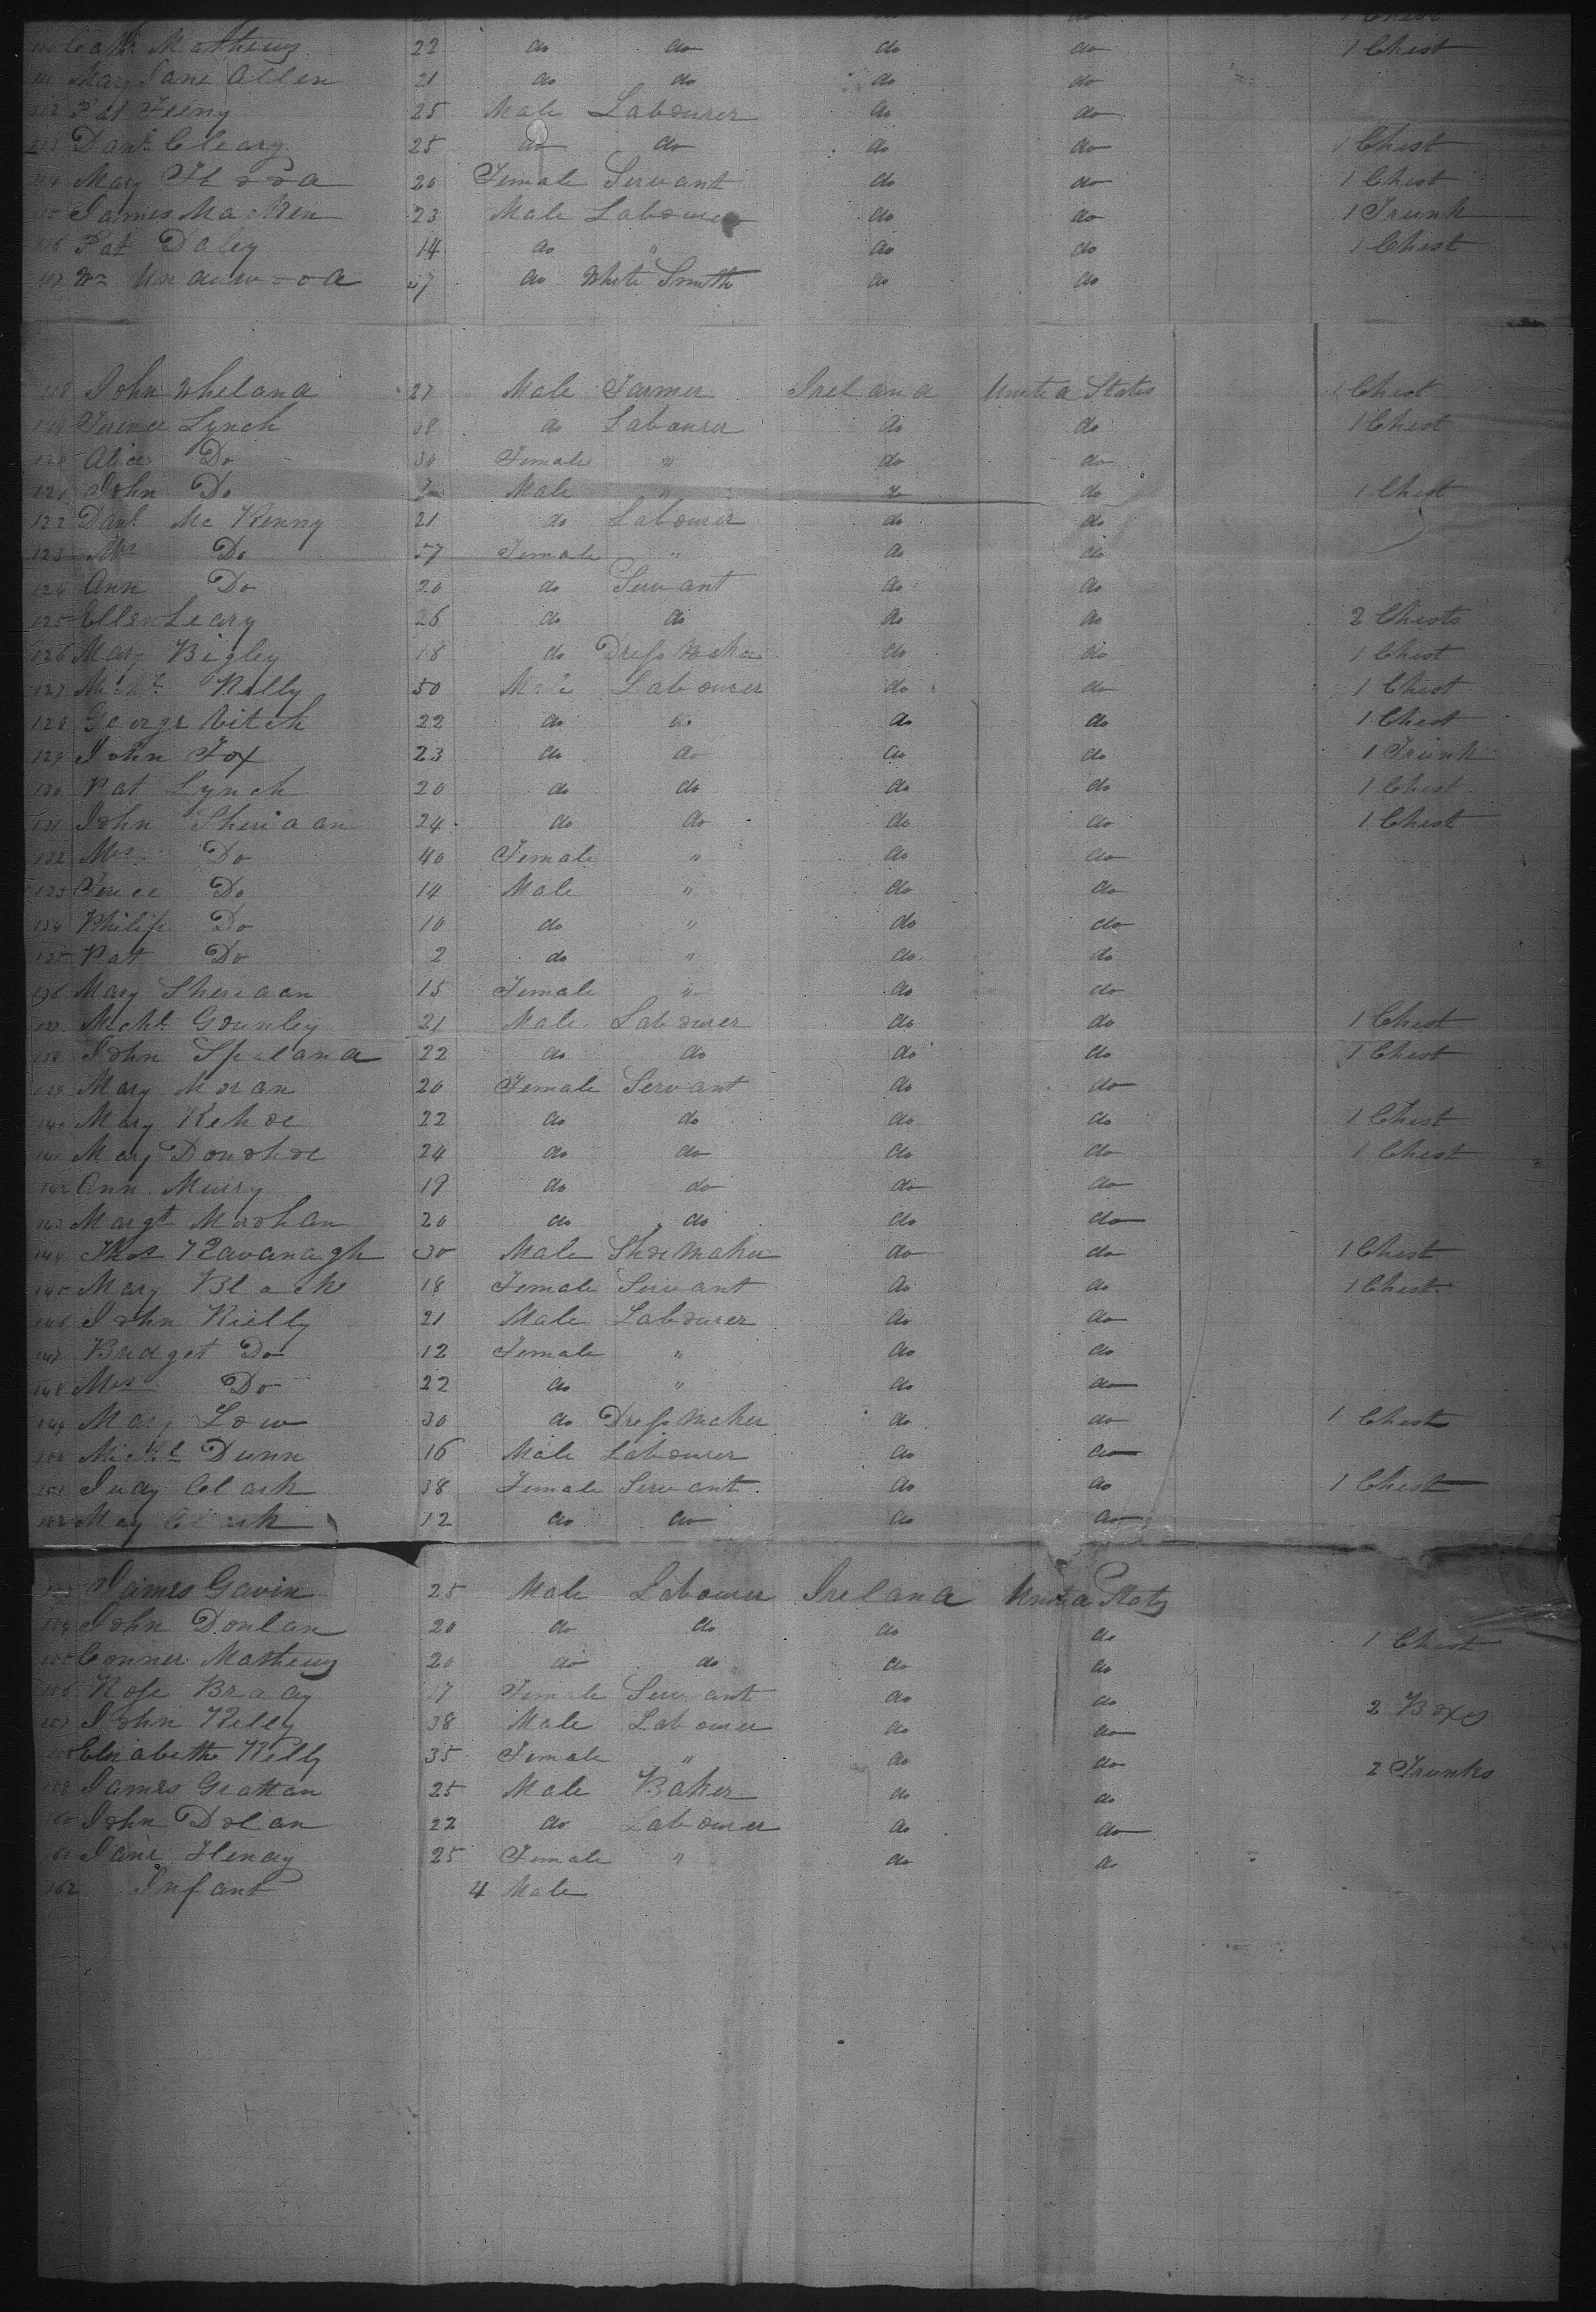 110 Cath. Mathews 22 do do do do 1 Chest
111 Mary Jane Allen 21 do do do do
112 Pat Feeny 25 Male Labourer do do
113 Danl. Cleary 25 do do do do 1 Chest
114 Mary Flood 20 Female Servant do do 1 Chest
115 James Macken 23 Male Labourer do do 1 Trunk
116 Pat Daley 14 do " do do 1 Chest
117 Wm Underwood do White Smith do do
118 John Wheland 27 Male Farmer Ireland United States 1 Chest
119 Terence Lynch 38 do Labourer do do 1 Chest
120 Alice Do 30 Female " do do
121 John Do Male " do do 1 Chest
122 Danl. Mc Kenny 21 do Labourer do do
123 Mrs Do 57 Female " do do
124 Ann Do 20 do Servant do do
125 Ellen Leary 26 do do do do 2 Chests
126 Mary Bigley 18 do Dress Maker do do 1 Chest
127 Michl. Kelly 50 Male Labourer do do 1 Chest
128 George Vitch 22 do do do do 1 Chest
129 John Fox 23 do do do do 1 Trunk
130 Pat Lynch 20 do do do do 1 Chest
131 John Sheridan 24 do do do do 1 Chest
132 Mrs Do 40 Female " do do
133 Do 14 Male " do do
134 Philip Do 10 do " do do
135 Pat Do 2 do " do do
136 Mary Sheridan 15 Female " do do
137 Michl. Gounley 21 Male Labourer do do 1 Chest
138 John Speland 22 do do do do 1 Chest
139 Mary Moran 20 Female Servant do do
140 Mary Kehoe 22 do do do do 1 Chest
141 Mary Donohoe 24 do do do do 1 Chest
142 Ann Murry 19 do do do do
143 Margt Moohan 20 do do do do
144 Thos Kavanagh 30 Male Shoe Maker do do 1 Chest
145 Mary Black 18 Female Servant do do 1 Chest
146 John Rielly 21 Male Labourer do do
147 Bridget Do 12 Female " do do
148 Mrs Do 22 do " do do
149 Mary Low 30 do Dress Maker do do 1 Chest
150 Michl. Dunn 16 Male Labourer do do
151 Judy Clark 38 Female Servant do do 1 Chest
152 May Clark 12 do do do do
153 James Gavin 25 Male Labourer Ireland United States
154 John Donlan 20 do do do do 1 Chest
155 Conner Mathews 20 do do do do
156 Rose Brady 17 Female Servant do do 2 Boxes
157 John Kelly 38 Male Labourer do do
158 Elizabeth Kelly 35 Female " do do 2 Trunks
159 James Grattan 25 Male Baker do do
160 John Dolan 22 do Labourer do do
161 Jane Henry 25 Female " do do
162 Infant 4 Male